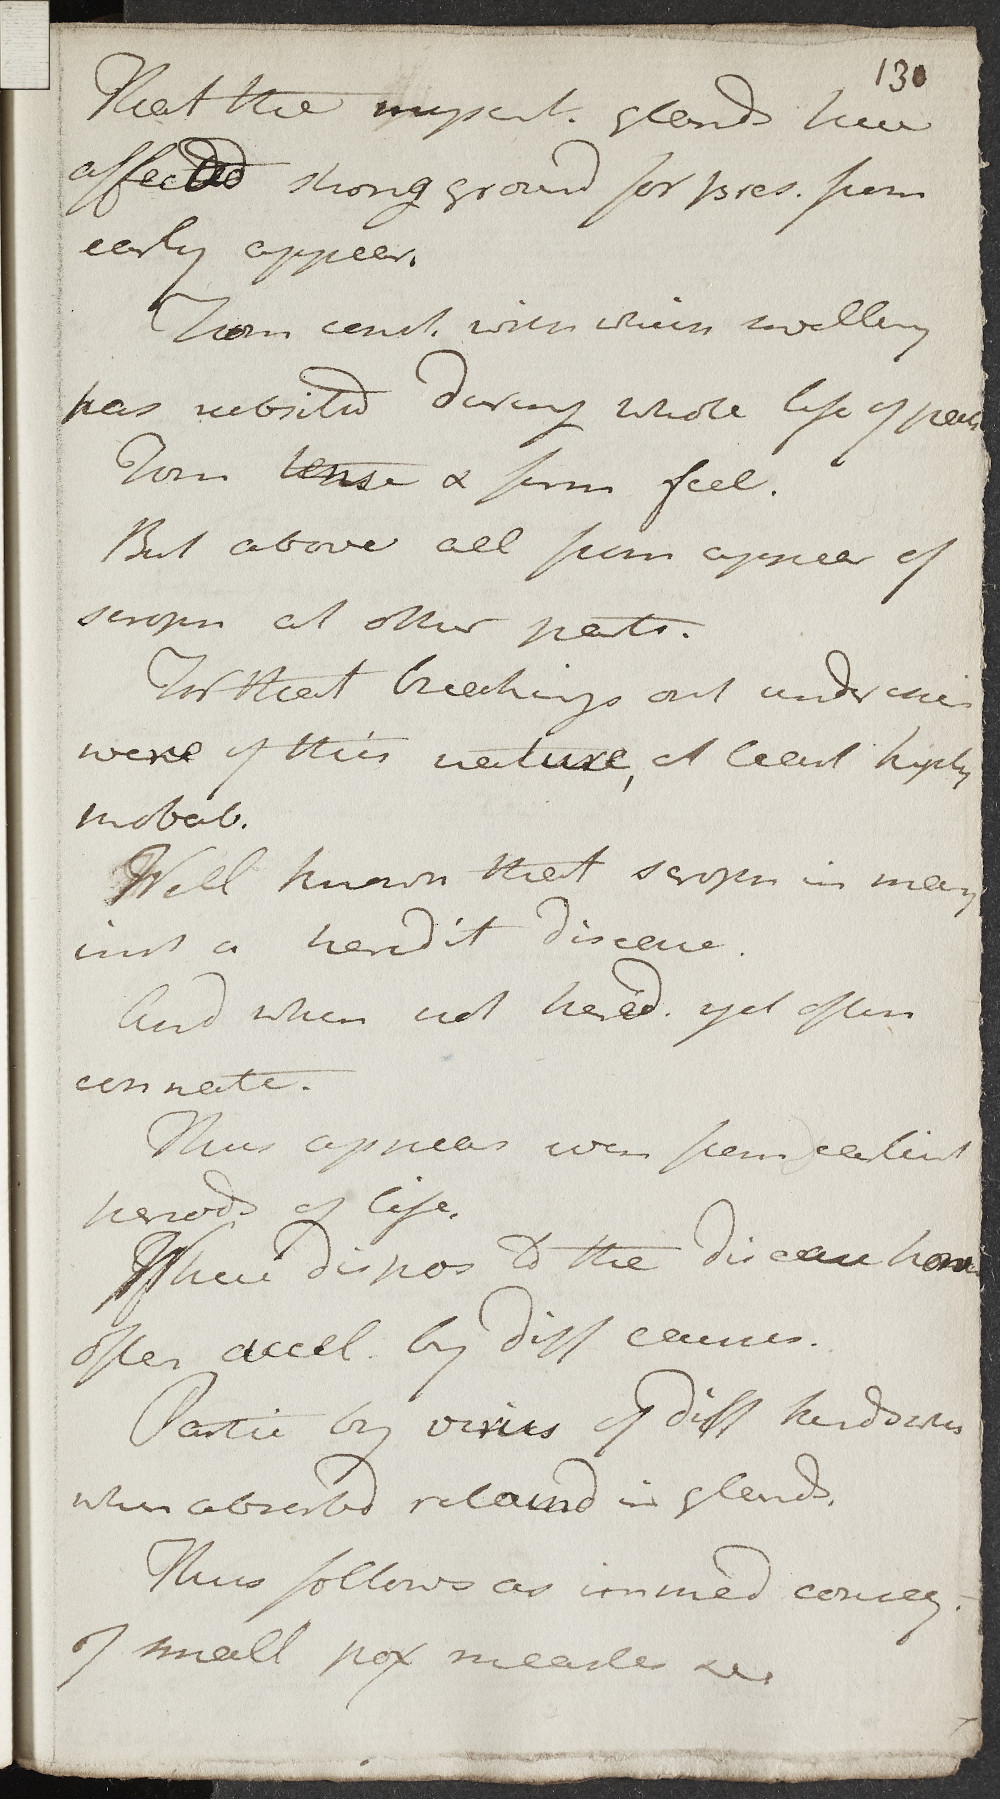 130
That the mesent. glands here
affected strong ground for pres. from
early appear.
From const. with which swelling
has subsisted during whole life of
From tense & firm feel.
But above all from appear of
scroph at other parts.
For that breakings out under chin
were of this nature, at least highly
probab.
Well known that scroph in many
inst a heredit disease.
And when not hered. yet often
connate.
Thus appears even from earliest
periods of life.
Where dispos to the disease
often accel. by diff causes.
Partic by virus of diff
when absorbed retaind in glands.
Thus follows as immed conseq.
of small pox measles &c.